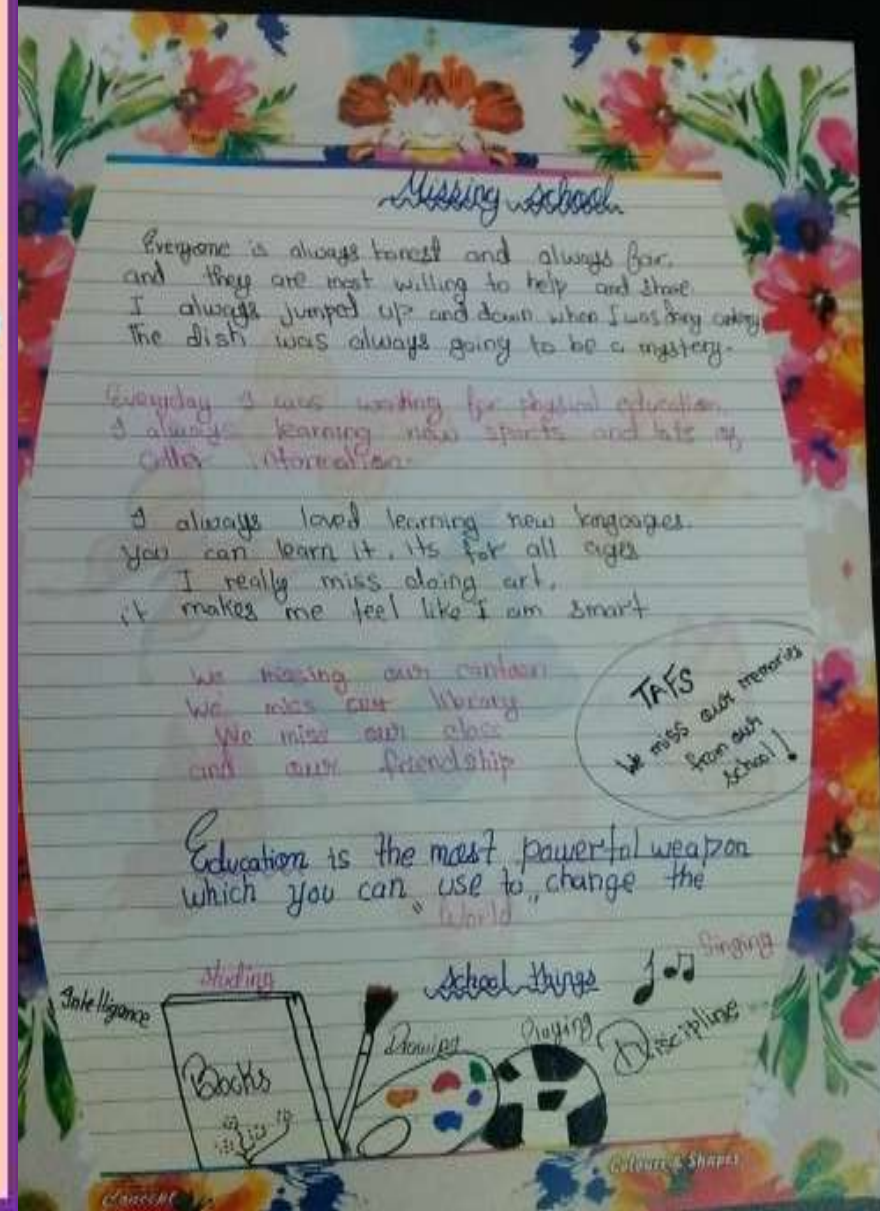 Missing school
Everyone is always honest and always fair.
and they are most willing to help and share
I always jumped up and down when I was doing
The dish was always going to be a mystery.
Everyday I was waiting for physical education.
I always learning new sports and lots of
other information.
I always loved learning new langooges.
you can learn it, its for all ages
I really miss doing art.
it makes me feel like I am smart
We missing our canteen
We miss our library
We miss our class
and our friendship
TAFS
We miss our memories
from our
school!
Education is the most powerful weapon
which you can use to change the
"World"
Studing
School things
Singing
Intelligance
Drawing
Playing
Discipline
Books
Colours & Shapes
Concept